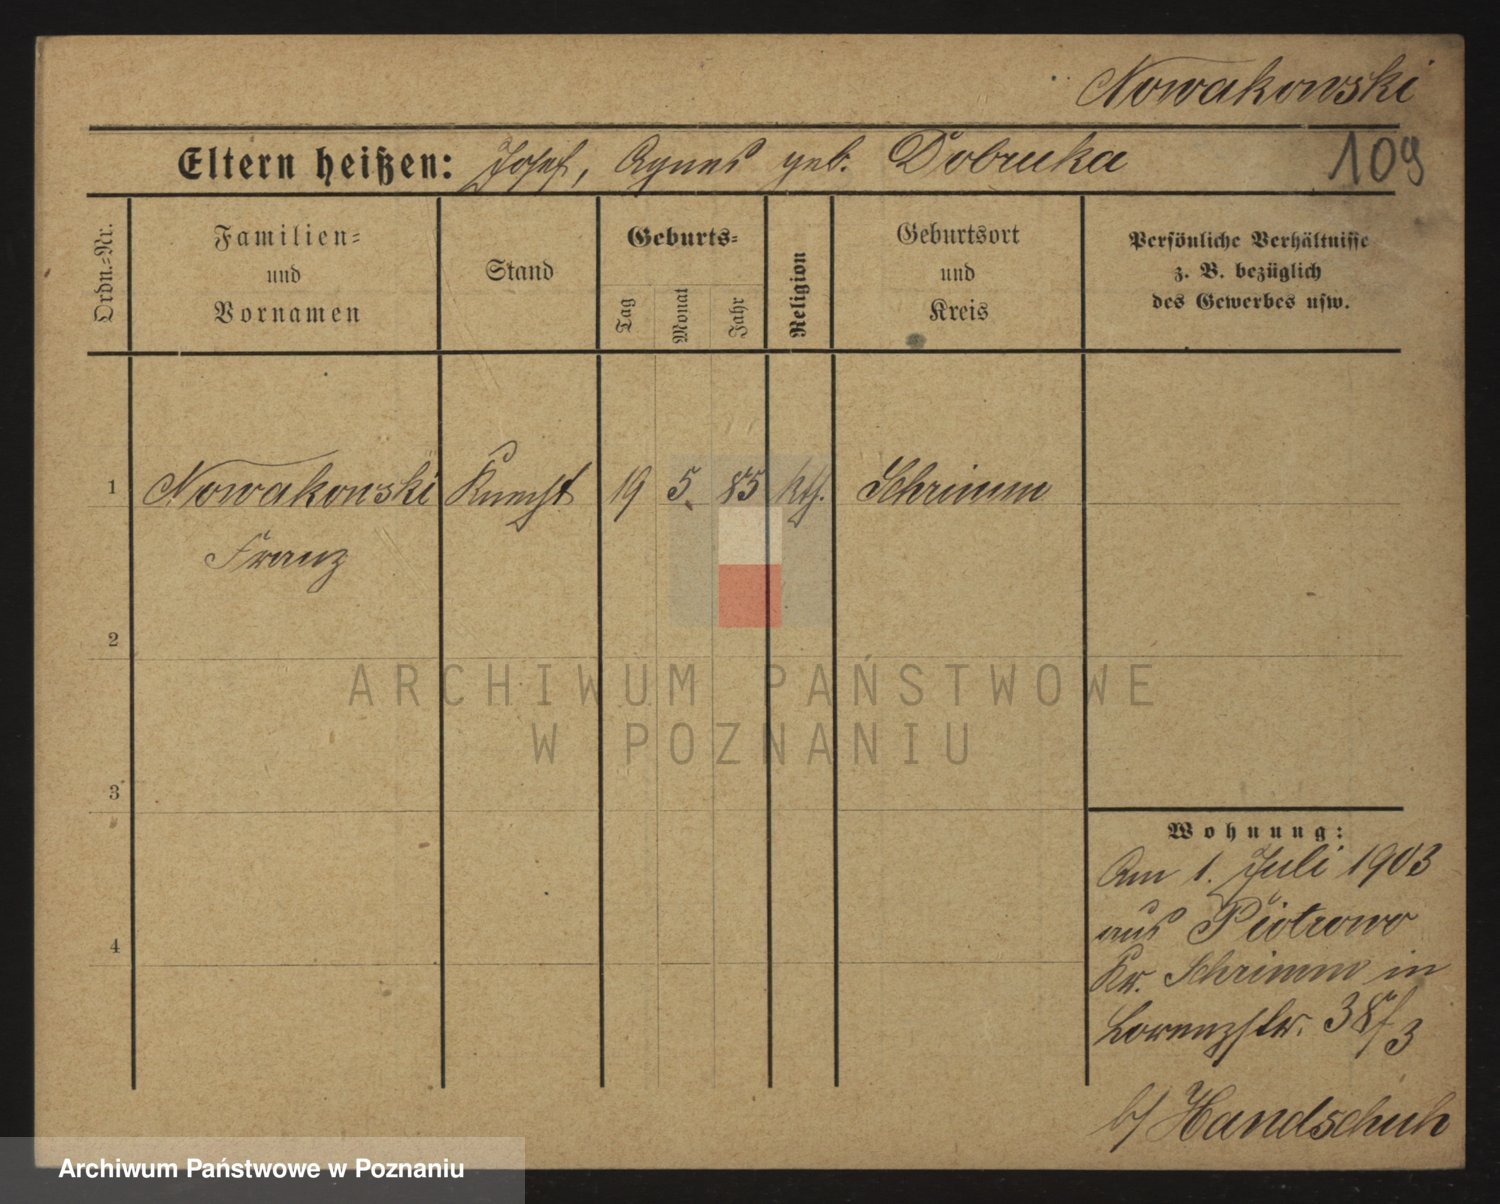 Nowakowski
Eltern heißen: Josef, Agnes geb. Dobrucka
109
Ordn.-Nr.
Familien-
und
Vornamen
Stand
Geburts-
Tag
Monat
Jahr
Religion
Geburtsort
und
Kreis
Persönliche Verhältnisse
z. B. bezüglich
des Gewerbes usw.
1 Nowakowski Knecht 19 5. 85 kth. Schrimm
Franz
2
3
4
Wohnung:
Am 1. Juli 1903
aus Piotrowo
Kr. Schrimm in
Lorenzstr. 38/3
b/ Handschuh
ARCHIWUM PAŃSTWOWE
W POZNANIU
Archiwum Państwowe w Poznaniu